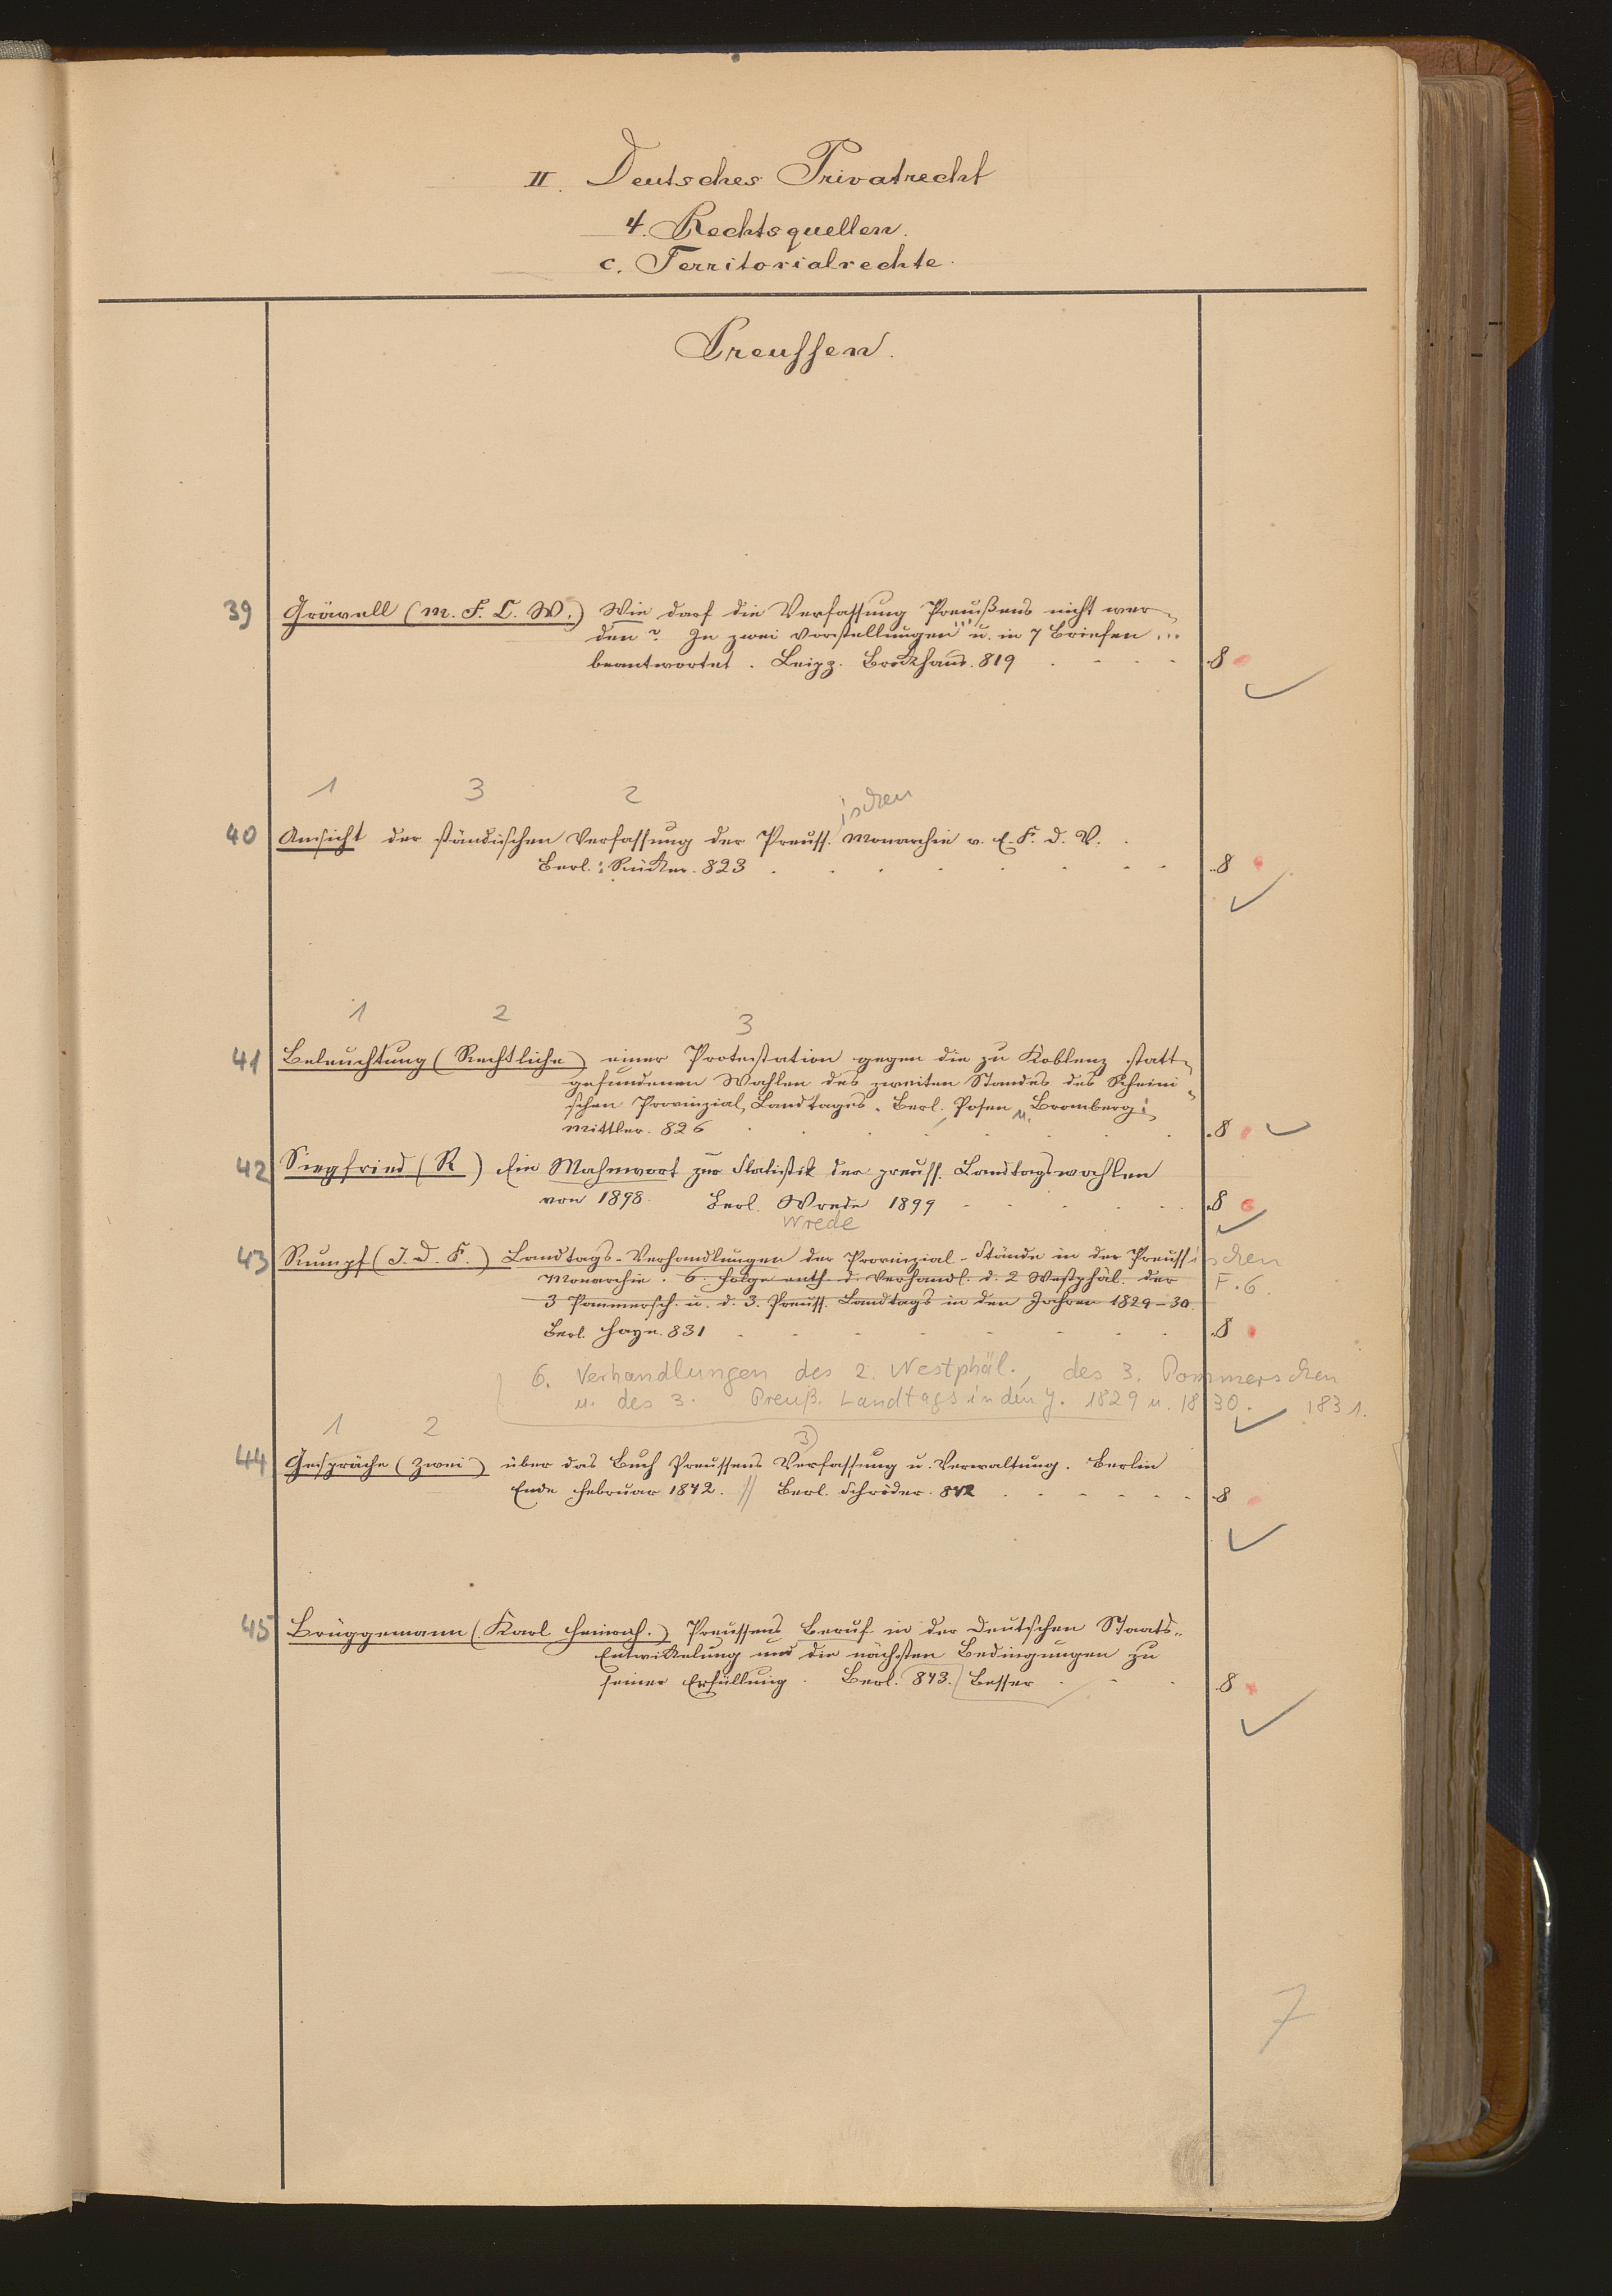 II. Deutsches Privatrecht
4. Rechtsquellen.
c. Territorialrechte.
Preussen.
39 Grävell (M. F. C. W.) Wie darf die Verfassung Preußens nicht wer-
den? In zwei Vorstellungen u. in 7 Briefen ...
beantwortet. Leipz. Brockhaus. 819 8
1 3 2 ischen
40 Ansicht der ständischen Verfassung der Preuss. Monarchie v. E. F. d. V.
Berl.: Rücker. 823 8
1 2 3
41 Beleuchtung (Rechtliche) einer Protestation gegen die zu Koblenz statt-
gefundenen Wahlen des zweiten Standes des Rheini-
schen Provinzial-Landtages. Berl. Posen, u. Bromberg:
Mittler. 826 8
42 Siegfried (R) Ein Mahnwort zur Statistik der preuss. Landtagswahlen
von 1898. Berl. Wrede 1899 8
Wrede
43 Rumpf (J. D. F.) Landtags-Verhandlungen der Provinzial-Stände in der Preussischen
Monarchie. 6. Folge enth. d. Verhandl. d. 2 Westphäl. der F. 6.
3 Pommersch. u. d. 3. Preuss. Landtags in den Jahren 1829-30.
Berl. Hayn. 831 8
6. Verhandlungen des 2. Westphäl., des 3. Pommerschen
u. des 3. Preuß. Landtags in den J. 1829 u. 1830. 1831.
1 2 3
44 Gespräche (Zwei) über das Buch Preussens Verfassung u. Verwaltung. Berlin
Ende Februar 1842. // Berl. Schröder. 842 8
45 Brüggemann (Karl Heinrich.) Preussens Beruf in der Deutschen Staats-
Entwickelung und die nächsten Bedingungen zu
seiner Erfüllung. Berl. 843. Besser 8
7